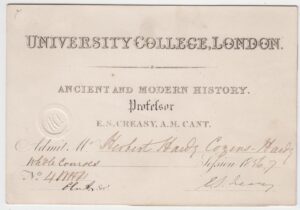 UNIVERSITY COLLEGE, LONDON.
ANCIENT AND MODERN HISTORY.
Professor
E. S. CREASY, A.M. CANT.
Admit Mr Herbert Hardy Cozens-Hardy
Whole Courses Session 18
No. 4